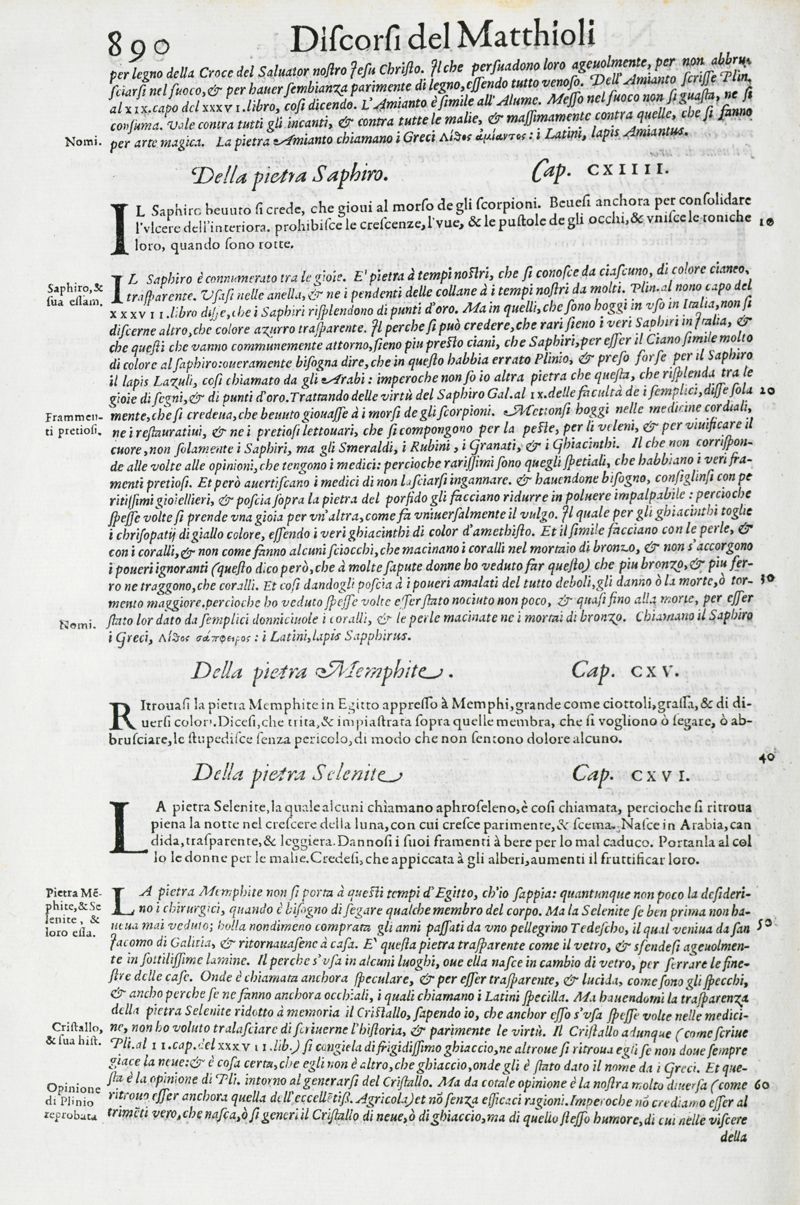 890 Diſcorſi del Matthioli
per legno della Croce del Saluator noſtro Jeſu Chriſto. Jl che perſuadono loro ageuolmente, per non abbru-
ſciarſi nel fuoco, & per hauer ſembianza parimente di legno, eſſendo tutto venoſo. Dell'Amianto ſcriſſe Plin.
al XIX. capo del XXXVI. libro, coſi dicendo. L'Amianto è ſimile all'Alume. Meſſo nel fuoco non ſi guaſta, ne ſi
conſuma. Vale contra tutti gli incanti, & contra tutte le malie, & maſſimamente contra quelle, che ſi fanno
Nomi. per arte magica. La pietra Amianto chiamano i Greci Λίθος ἀμίαντος: i Latini, lapis Amiantus.
Della pietra Saphiro. Cap. CXIIII.
IL Saphiro beuuto ſi crede, che gioui al morſo de gli ſcorpioni. Beueſi anchora per conſolidare
l'vlcere dell'interiora. prohibiſce le creſcenze, l'vue, & le puſtole de gli occhi, & vniſce le toniche 10
loro, quando ſono rotte.
Saphiro, &
ſua eſſam.
IL Saphiro è connumerato tra le gioie. E' pietra à tempi noſtri, che ſi conoſce da ciaſcuno, di colore cianeo,
traſparente. Vſaſi nelle anella, & ne i pendenti delle collane à i tempi noſtri da molti. Plin. al nono capo del
XXXVII. libro diſſe, che i Saphiri riſplendono di punti d'oro. Ma in quelli, che ſono hoggi in vſo in Italia, non ſi
diſcerne altro, che colore azurro traſparente. Jl perche ſi può credere, che rari ſieno i veri Saphiri in Jtalia, &
che queſti che vanno communemente attorno, ſieno piu preſto ciani, che Saphiri, per eſſer il Ciano ſimile molto
di colore al ſaphiro: oueramente biſogna dire, che in queſto habbia errato Plinio, & preſo forſe per il Saphiro
il lapis Lazuli, coſi chiamato da gli Arabi: imperoche non ſo io altra pietra che queſta, che riſplenda tra le
gioie di ſegni, & di punti d'oro. Trattando delle virtù del Saphiro Gal. al IX. delle facultà de i ſemplici, diſſe ſola 20
Frammen-
ti pretioſi.
mente, che ſi credeua, che beuuto giouaſſe à i morſi de gli ſcorpioni. Mettonſi hoggi nelle medicine cordiali,
ne i reſtauratiui, & ne i pretioſi lettouari, che ſi compongono per la peſte, per li veleni, & per viuificare il
cuore, non ſolamente i Saphiri, ma gli Smeraldi, i Rubini, i Granati, & i Ghiacinthi. Il che non corriſpon-
de alle volte alle opinioni, che tengono i medici: percioche rariſſimi ſono quegli ſpetiali, che habbiano i veri fra-
menti pretioſi. Et però auertiſcano i medici di non laſciarſi ingannare. & hauendone biſogno, conſiglinſi con pe
ritiſſimi gioiellieri, & poſcia ſopra la pietra del porfido gli facciano ridurre in poluere impalpabile: percioche
ſpeſſe volte ſi prende vna gioia per vn'altra, come fà vniuerſalmente il vulgo. Jl quale per gli ghiacinthi toglie
i chriſopatij di giallo colore, eſſendo i veri ghiacinthi di color d'amethiſto. Et il ſimile facciano con le perle, &
con i coralli, & non come fanno alcuni ſciocchi, che macinano i coralli nel mortaio di bronzo, & non s'accorgono
i poueri ignoranti (queſto dico però, che à molte ſapute donne ho veduto far queſto) che piu bronzo, & piu fer-
ro ne traggono, che coralli. Et coſi dandogli poſcia à i poueri amalati del tutto deboli, gli danno ò la morte, ò tor- 30
mento maggiore. percioche ho veduto ſpeſſe volte eſſer ſtato nociuto non poco, & quaſi fino alla morte, per eſſer
Nomi. ſtato lor dato da ſemplici donniciuole i coralli, & le perle macinate ne i mortai di bronzo. Chiamano il Saphiro
i Greci, Λίθος σάπφειρος: i Latini, lapis Sapphirus.
Della pietra Memphite. Cap. CXV.
RItrouaſi la pietra Memphite in Egitto appreſſo à Memphi, grande come ciottoli, graſſa, & di di-
uerſi colori. Diceſi, che trita, & impiaſtrata ſopra quelle membra, che ſi vogliono ò ſegare, ò ab-
bruſciare, le ſtupediſce ſenza pericolo, di modo che non ſentono dolore alcuno.
40
Della pietra Selenite Cap. CXVI.
LA pietra Selenite, la quale alcuni chiamano aphroſeleno, è coſi chiamata, percioche ſi ritroua
piena la notte nel creſcere della luna, con cui creſce parimente, & ſcema. Naſce in Arabia, can
dida, traſparente, & leggiera. Dannoſi i ſuoi framenti à bere per lo mal caduco. Portanla al col
lo le donne per le malie. Credeſi, che appiccata à gli alberi, aumenti il fruttificar loro.
Pietra Mē-
phite, & Se
lenite, &
loro eſſa.
LA pietra Memphite non ſi porta à queſti tempi d'Egitto, ch'io ſappia: quantunque non poco la deſideri-
no i chirurgici, quando è biſogno di ſegare qualche membro del corpo. Ma la Selenite ſe ben prima non ha-
ueua mai veduto; holla nondimeno comprata gli anni paſſati da vno pellegrino Tedeſcho, il qual veniua da ſan 50
Jacomo di Galitia, & ritornauaſene à caſa. E' queſta pietra traſparente come il vetro, & sfendeſi ageuolmen-
te in ſottiliſſime lamine. Il perche s'vſa in alcuni luoghi, oue ella naſce in cambio di vetro, per ſerrare le fine-
ſtre delle caſe. Onde è chiamata anchora ſpeculare, & per eſſer traſparente, & lucida, come ſono gli ſpecchi,
& ancho perche ſe ne fanno anchora occhiali, i quali chiamano i Latini ſpecilla. Ma hauendomi la traſparenza
della pietra Selenite ridotto à memoria il Criſtallo, ſapendo io, che anchor eſſo s'vſa ſpeſſe volte nelle medici-
Criſtallo,
& ſua hiſt.
ne, non ho voluto tralaſciare di ſcriuerne l'hiſtoria, & parimente le virtù. Il Criſtallo adunque (come ſcriue
Pli. al II. cap. del XXXVII. lib.) ſi congiela di frigidiſſimo ghiaccio, ne altroue ſi ritroua egli ſe non doue ſempre
giace la neue: & è coſa certa, che egli non è altro, che ghiaccio, onde gli è ſtato dato il nome da i Greci. Et que-
Opinione
di Plinio
reprobata
ſta è la opinione di Pli. intorno al generarſi del Criſtallo. Ma da cotale opinione è la noſtra molto diuerſa (come 60
ritrouo eſſer anchora quella dell'eccellētiſs. Agricola) et nō ſenza efficaci ragioni. Imperoche nō crediamo eſſer al
trimēti vero, che naſca, ò ſi generi il Criſtallo di neue, ò di ghiaccio, ma di quello ſteſſo humore, di cui nelle viſcere
della